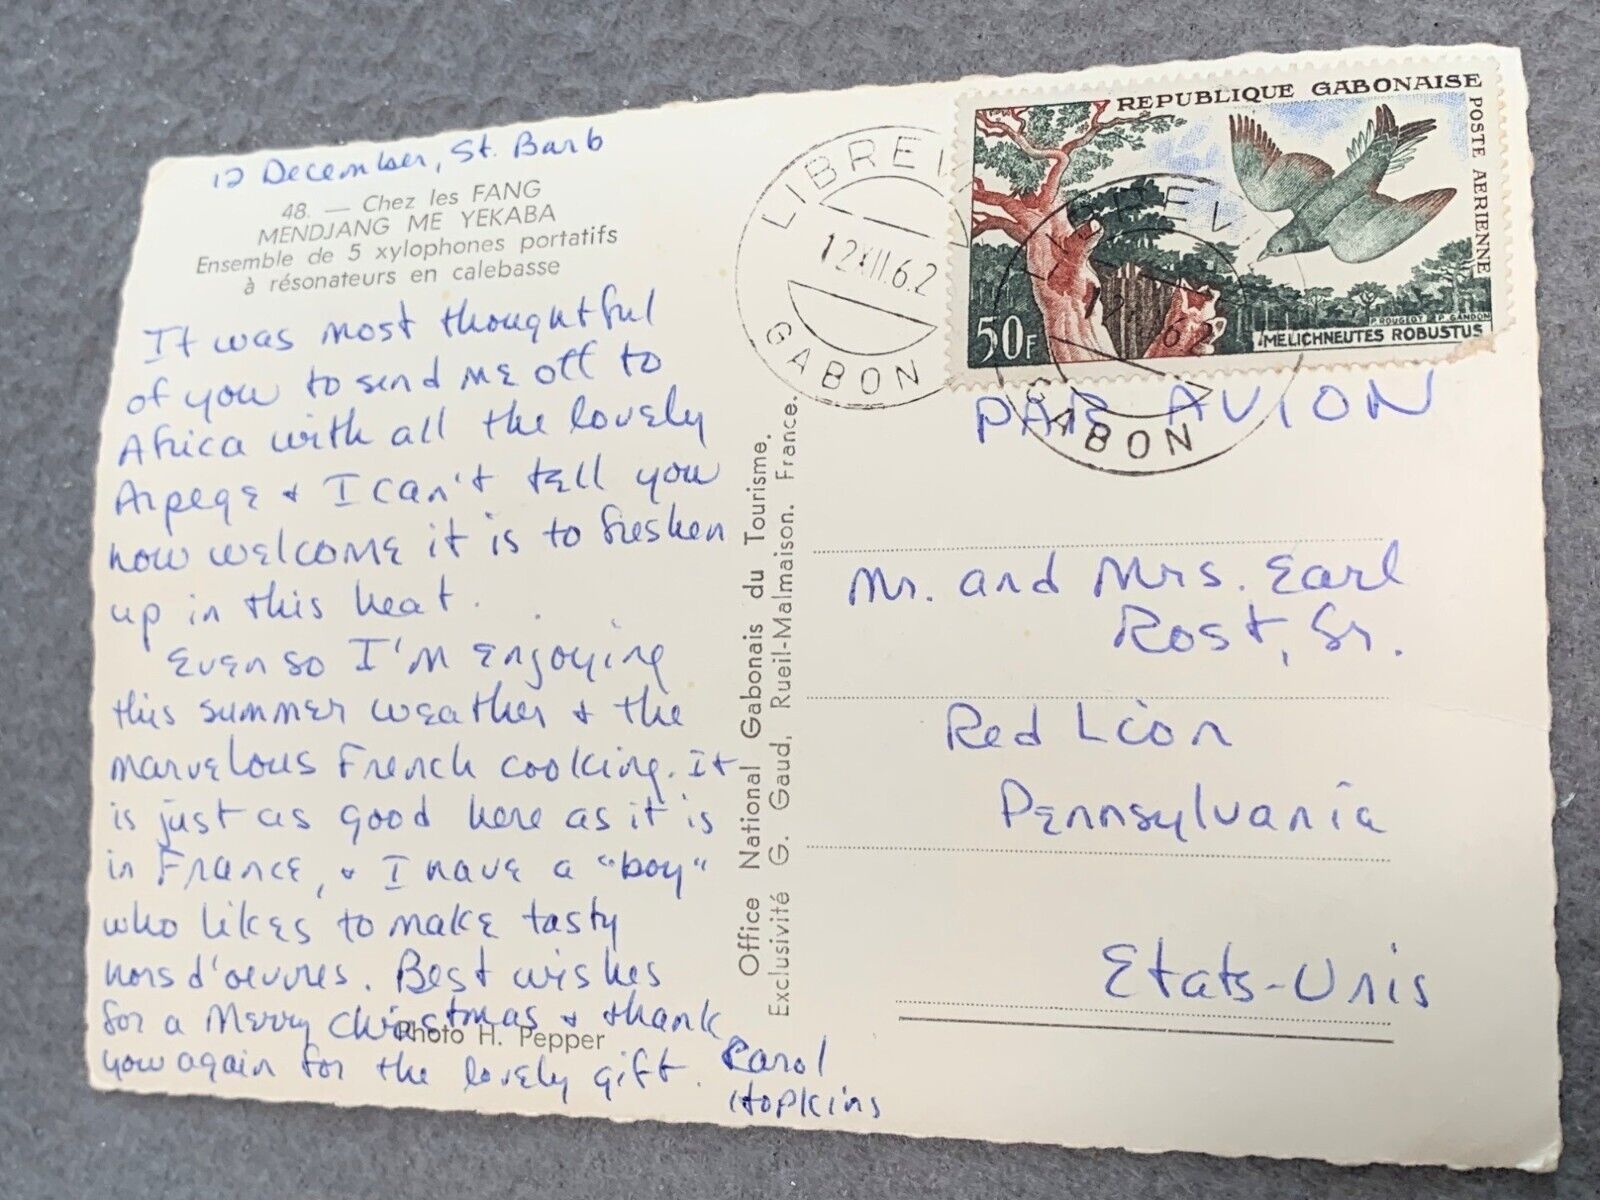 12 December, St. Barb
48. — Chez les FANG
MENDJANG ME YEKABA
Ensemble de 5 xylophones portatifs
à résonateurs en calebasse
It was most thoughtful
of you to send me off to
Africa with all the lovely
Arpege + I can't tell you
how welcome it is to freshen
up in this heat.
Even so I'm enjoying
this summer weather + the
marvelous French cooking. It
is just as good here as it is
in France, + I have a "boy"
who likes to make tasty
hors d'oeuvres. Best wishes
for a Merry Christmas + thank
you again for the lovely gift.
Karol
Hopkins
Photo H. Pepper
Office National Gabonais du Tourisme.
Exclusivité G. Gaud, Rueil-Malmaison. France.
LIBREV
12 XII 62
GABON
REPUBLIQUE GABONAISE
POSTE AERIENNE
50F
P. ROUGEOT P. GANDON
MELICHNEUTES ROBUSTUS
LIBREV
12 XII 62
GABON
PAR AVION
Mr. and Mrs. Earl
Rost, Sr.
Red Lion
Pennsylvania
Etats-Unis